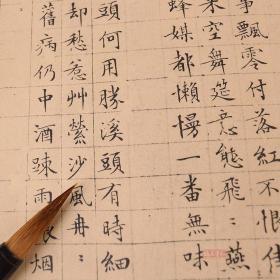 事飄零付落紅不恨
來空舞筵意態飛〻燕
蜂媒都懶慢一番無味
頭何用勝溪頭有時細
却愁惹艸縈沙風冉〻
舊病仍中酒踈雨 烟